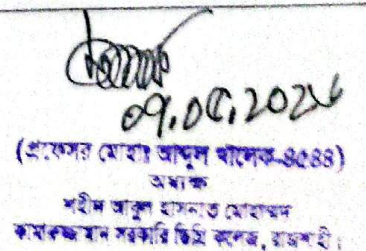 ০৭.০৫.২০২৬
(প্রফেসর মোহাঃ আব্দুল খালেক-৪৫৪৪)
অধ্যক্ষ
শহীদ আবুল হাসনাত মোহাম্মদ
কামারুজ্জামান সরকারি ডিগ্রি কলেজ, রাজশাহী।